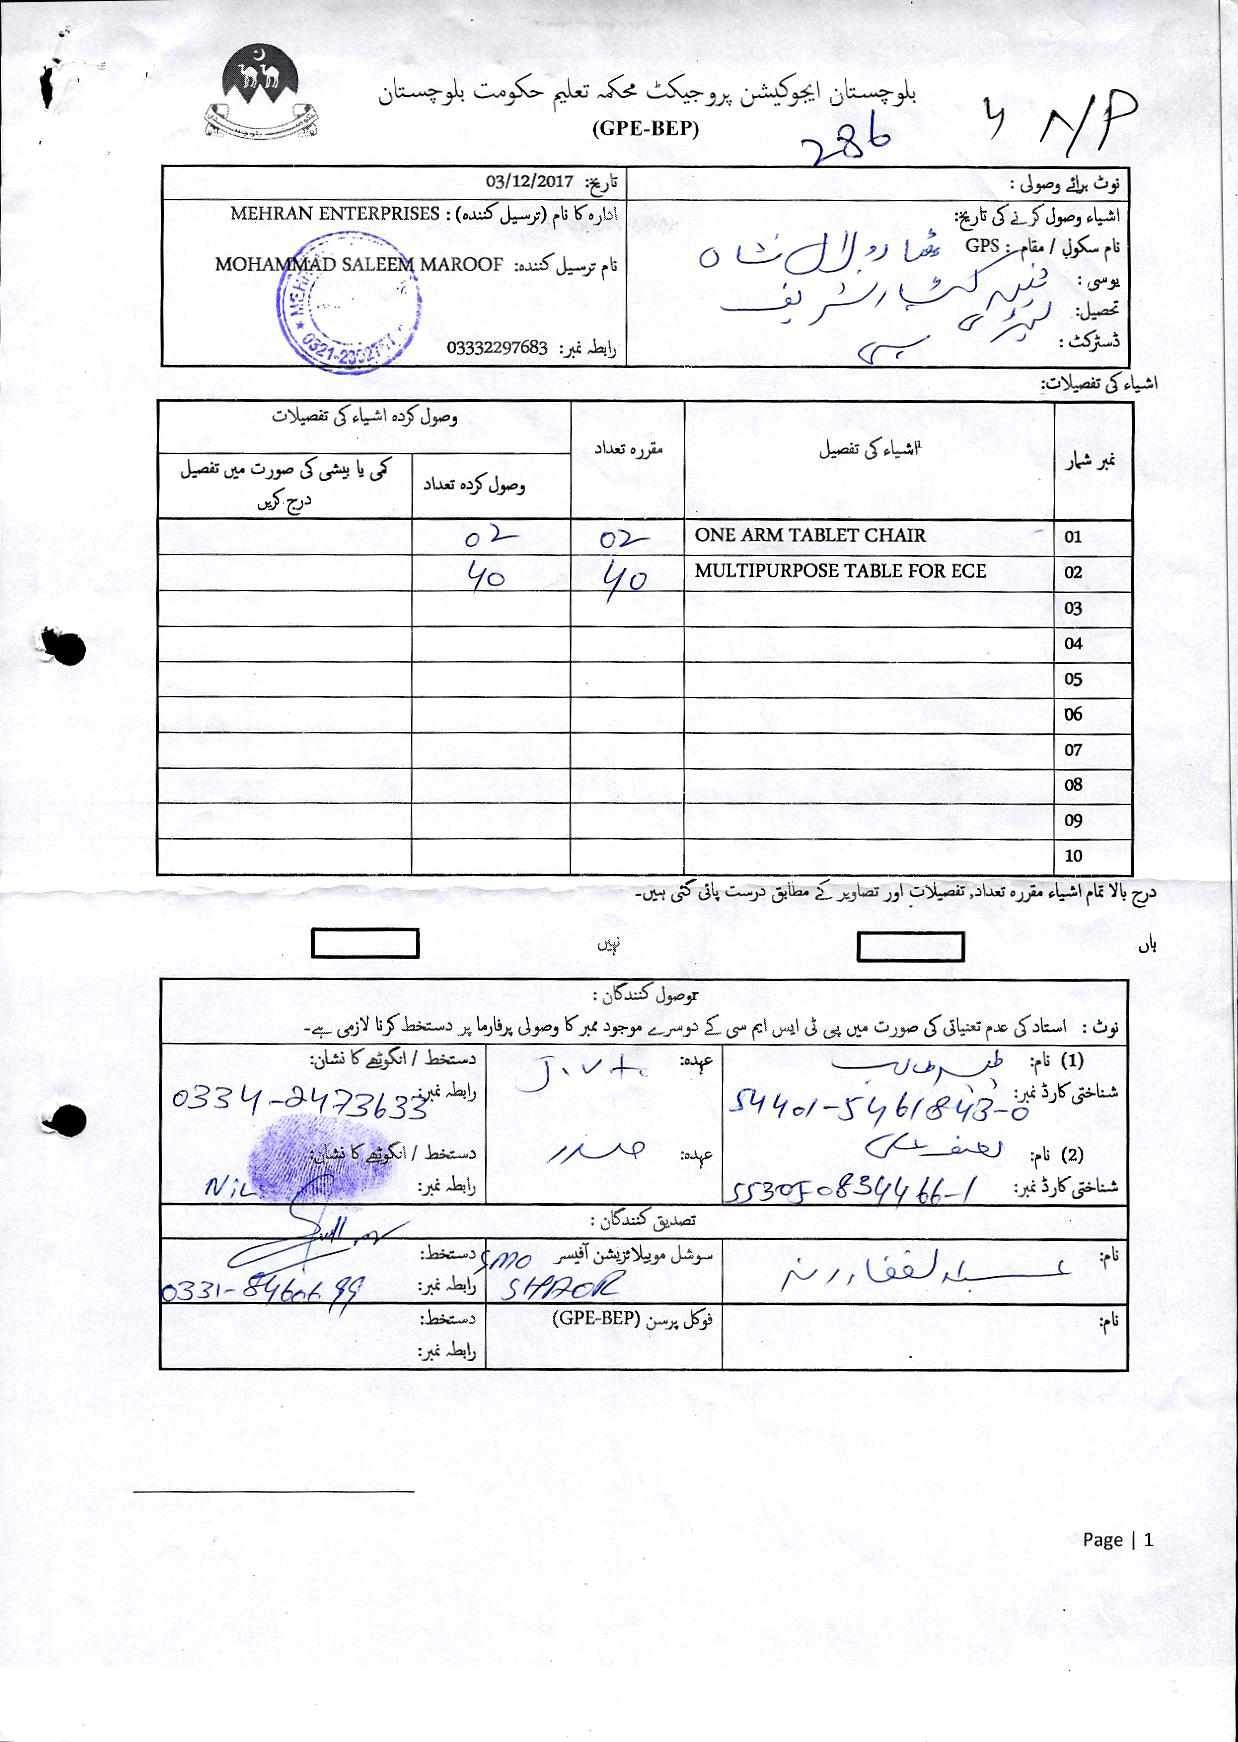 بلوچستان ایجوکیشن پروجیکٹ محکمہ تعلیم حکومت بلوچستان
(GPE-BEP)
286
N/P
نوٹ برائے وصولی :
تاریخ: 03/12/2017
اشیاء وصول کرنے کی تاریخ:
ادارہ کا نام (ترسیل کنندہ) : MEHRAN ENTERPRISES
نام سکول / مقام : GPS
نام ترسیل کنندہ: MOHAMMAD SALEEM MAROOF
یوسی :
تحصیل:
ڈسٹرکٹ : سبی
رابطہ نمبر: 03332297683
اشیاء کی تفصیلات:
نمبر شمار
اشیاء کی تفصیل
مقررہ تعداد
وصول کردہ اشیاء کی تفصیلات
وصول کردہ تعداد
کمی یا بیشی کی صورت میں تفصیل درج کریں
01 ONE ARM TABLET CHAIR 02 02
02 MULTIPURPOSE TABLE FOR ECE 40 40
03
04
05
06
07
08
09
10
درج بالا تمام اشیاء مقررہ تعداد, تفصیلات اور تصاویر کے مطابق درست پائی گئی ہیں۔
ہاں
نہیں
وصول کنندگان :
نوٹ : استاد کی عدم تعنیاتی کی صورت میں پی ٹی ایس ایم سی کے دوسرے موجود ممبر کا وصولی پرفارما پر دستخط کرنا لازمی ہے۔
(1) نام:
عہدہ: J.V.t.
دستخط / انگوٹھے کا نشان:
شناختی کارڈ نمبر: 54401-5461843-0
رابطہ نمبر: 0334-2473633
(2) نام:
عہدہ: صدر
دستخط / انگوٹھے کا نشان:
شناختی کارڈ نمبر:
رابطہ نمبر: NiL
تصدیق کنندگان :
نام:
سوشل موبیلائزیشن آفیسر SMO
دستخط:
رابطہ نمبر:
نام:
فوکل پرسن (GPE-BEP)
دستخط:
رابطہ نمبر:
Page | 1